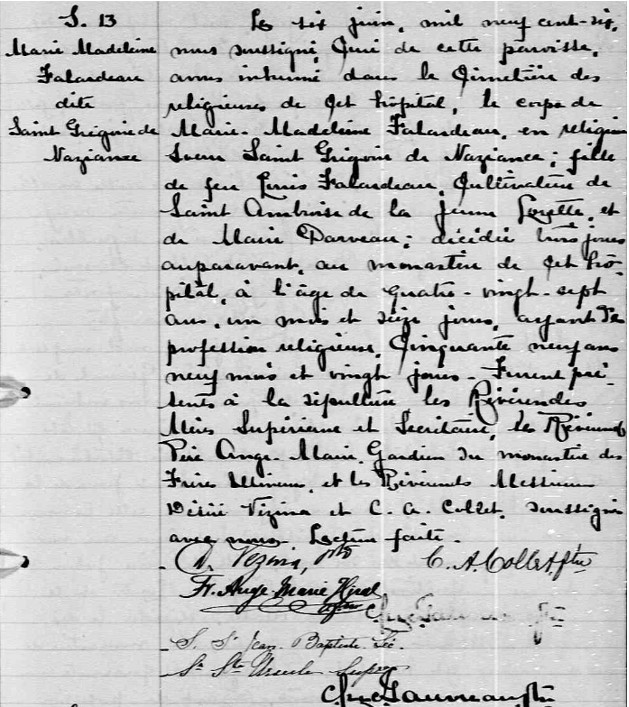 S. 13
Marie Madeleine
Falardeau
dite
Saint Grégoire de
Nazianze
Le six juin, mil neuf cent-six,
nous soussigné, Curé de cette paroisse,
avons inhumé dans le Cimetière des
religieuses de cet hôpital, le corps de
Marie-Madeleine Falardeau, en religion
Soeur Saint Grégoire de Nazianze; fille
de feu Louis Falardeau, Cultivateur de
Saint Ambroise de la jeune Lorette, et
de Marie Darveau; décédée trois jours
auparavant, au monastère de cet hô-
pital, à l'âge de quatre-vingt-sept
ans, un mois et seize jours, ayant de
profession religieuse, Cinquante neuf ans
neuf mois et vingt jours. Furent pré-
sents à la sépulture les Révérendes
Mères Supérieure et Secrétaire, le Révérend
Père Ange-Marie, Gardien du monastère des
Frères Mineurs, et les Révérends Messieurs
Désiré Vézina et C. A. Collet, soussignés
avec nous. Lecture faite.
D. Vézina, ptre C. A. Collet ptre
Fr. Ange Marie
S. St Jean Baptiste Séc.
Sr Ste Ursule Supre